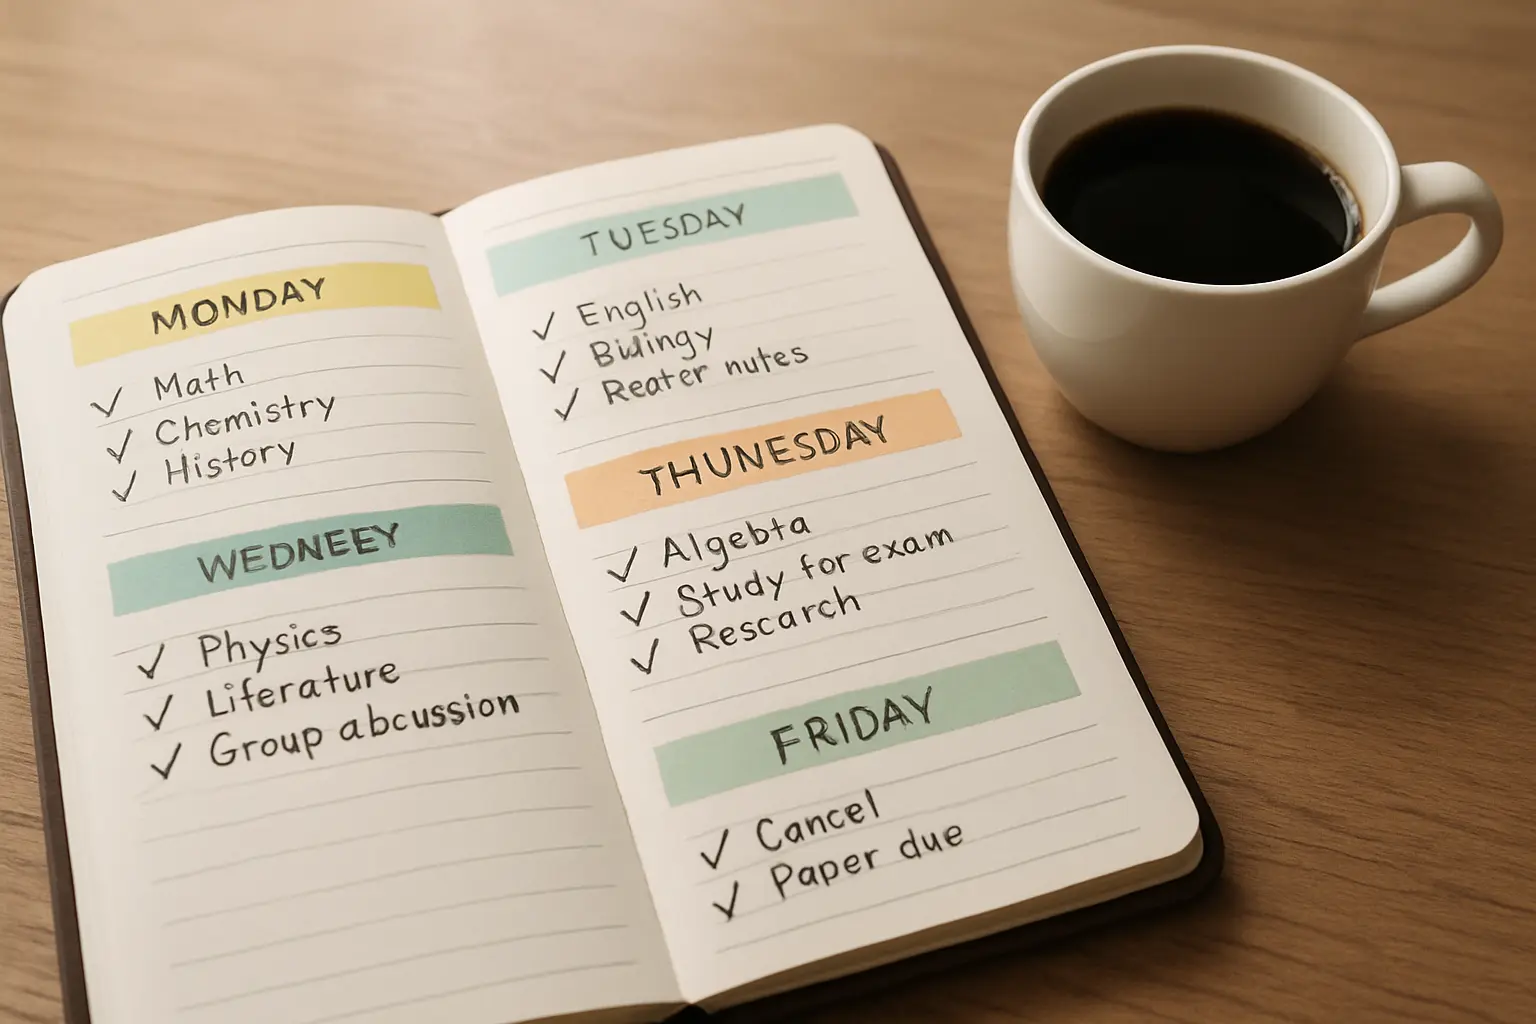 MONDAY
✓ Math
✓ Chemistry
✓ History
WEDNEEY
✓ Physics
✓ Liferature
✓ Group abcussion
TUESDAY
✓ English
✓ Biulingy
✓ Reater nutes
THUNESDAY
✓ Algebta
✓ Study for exam
✓ Rescarch
FRIDAY
✓ Cancel
✓ Paper due